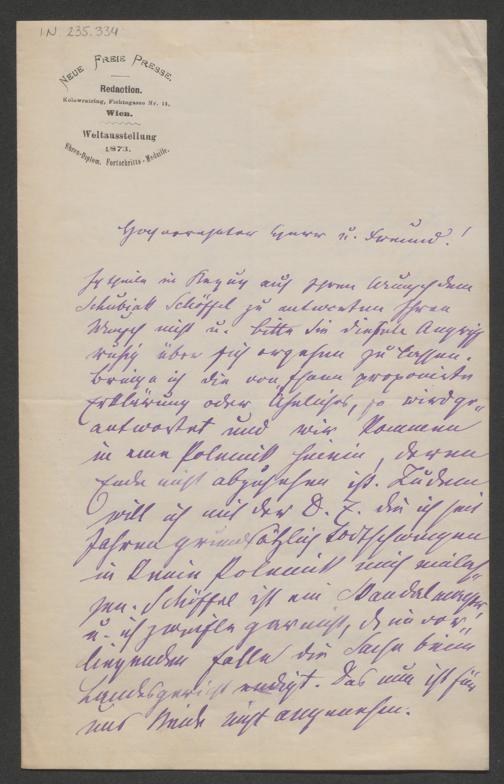 I.N. 235.334
NEUE FREIE PRESSE.
Redaction.
Kolowratring, Fichtegasse Nr. 11,
Wien.
Weltausstellung
1873.
Ehren-Diplom. Fortschritts-Medaille.
Hochverehrter Herr u. Freund!
Ich theile in Bezug auf Ihren Wunsch dem
Schubjak Schöffel zu antworten Ihren
Wunsch nicht u. bitte Sie diesen Angriff
ruhig über sich ergehen zu lassen.
Bringe ich die von Ihnen proponirte
Erklärung oder Ähnliches, so wird ge„
antwortet und wir kommen
in eine Polemik hinein, deren
Ende nicht abzusehen ist. Zudem
will ich mit der D. Z. die ich seit
Jahren grundsätzlich todtschweigen
in keine Polemik mich einlas„
sen. Schöffel ist ein Skandalmacher
u. ich zweifle gar nicht, d. im vor„
liegenden Falle die Sache beim
Landesgericht endigt. Das nun ist für
uns Beide nicht angenehm.